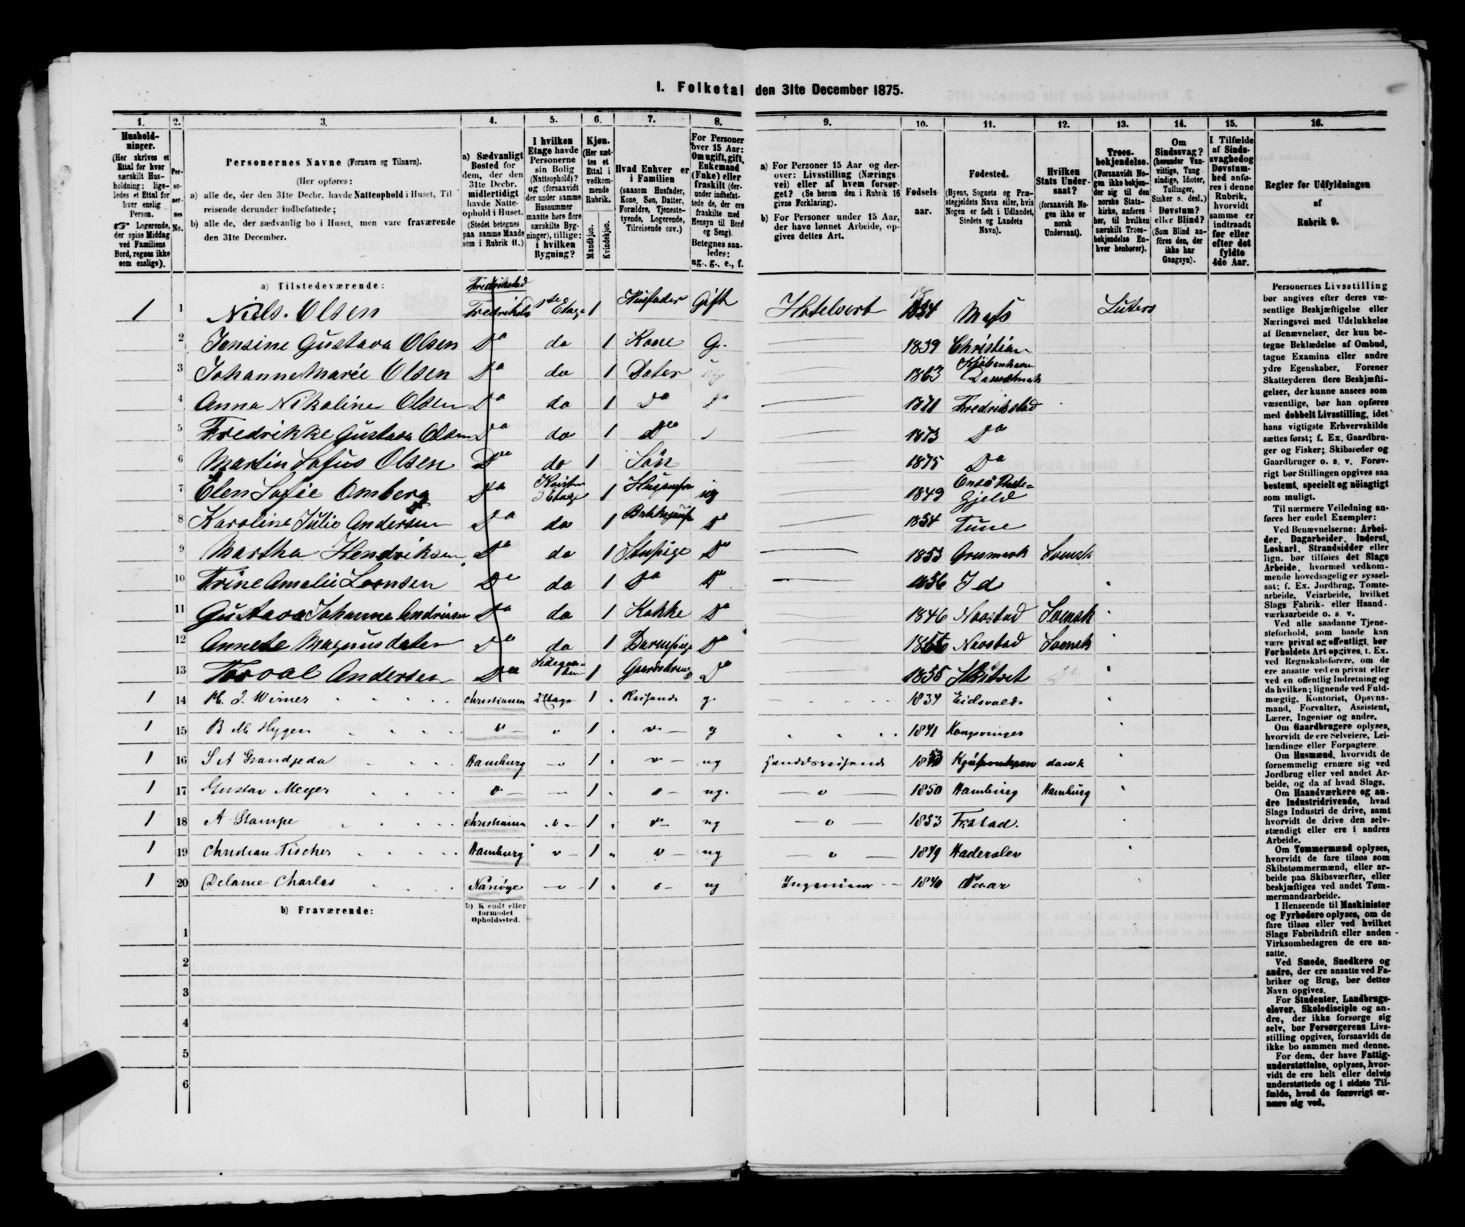 1. Folketal den 31te December 1875.
1. 2. 3. 4. 5. 6. 7. 8. 9. 10. 11. 12. 13. 14. 15. 16.
Husholdninger.
(Her skrives et Ettal for hver særskilt Husholdning; ligeledes et Ettal for hver enslig Person.
☞ Logerende, der spise Middag ved Familiens Bord, regnes ikke som enslige).
Personernes No.
Personernes Navne (Fornavn og Tilnavn).
(Her opføres:
a) alle de, der den 31te Decbr. havde Natteophold i Huset, Tilreisende derunder indbefattede;
b) alle de, der sædvanlig bo i Huset, men vare fraværende den 31te December.
a) Sædvanligt Bosted for dem, der den 31te Decbr. midlertidigt havde Natteophold i Huset. (Stedet betegnes paa samme Maade som i Rubrik 11.)
I hvilken Etage havde Personerne sin Bolig (Natteophold)? og (forsaavidt der under samme Husnummer maatte høre flere særskilte Bygninger), tillige: i hvilken Bygning?
Kjøn. (Her sættes et Ettal i vedkommende Rubrik.
Mandkjøn. Kvindekjøn.
Hvad Enhver er i Familien
(saasom Husfader, Kone, Søn, Datter, Forældre, Tjenestetyende, Logerende, Tilreisende osv.)
For Personer over 15 Aar: Om ugift, gift, Enkemand (Enke) eller fraskilt (derunder indbefattede de, der ere fraskilte med Hensyn til Bord og Seng). Betegnes saaledes: ug., g., e., f.
a) For Personer 15 Aar og derover: Livsstilling (Næringsvei) eller af hvem forsørget? (Se herom den i Rubrik 16 givne Forklaring).
b) For Personer under 15 Aar, der have lønnet Arbeide, opgives dettes Art.
Fødselsaar.
Fødested.
(Byens, Sognets og Præstegjeldets Navn eller, hvis Nogen er født i Udlandet, Stedets og Landets Navn).
Hvilken Stats Undersaat?
(forsaavidt Nogen ikke er norsk Undersaat).
Troesbekjendelse.
(Forsaavidt Nogen ikke bekjender sig til den norske Statskirke, anføres her, til hvilken særskilt Troesbekjendelse Enhver henhører).
Om Sindssvag? (herunder Vanvittige, Tungsindige, Idioter, Tullinger, Sinker o. desl.) Døvstum? eller Blind? (Som Blind anføres den, der ikke har Gangsyn).
I Tilfælde af Sindssvaghed og Døvstumhed anføres i denne Rubrik, hvorvidt samme er indtraadt før eller efter det fyldte 4de Aar.
Regler for Udfyldningen af Rubrik 9.
a) Tilstedeværende: Fredrikstad
1 1 Niels Olsen 1ste Etage 1 Husfader Gift Hotelvert 1834 Moss Luters
2 Jensine Gustava Olsen Do do 1 Kone G. 1839 Christian
3 Johanne Marie Olsen Do do 1 Dater 1863 Kjøbenhavn Danemark
4 Anna Nikoline Olsen Do do 1 Do 1871 Fredrikstad
5 Fredrikke Gustava Olsen Do do 1 Do 1873 Do
6 Martin Sofus Olsen Do do 1 Søn 1875 Do
7 Elen Sofie Omberg Do Kvister 3 Etage 1 ug 1849 Gjeld
8 Karoline Julie Andersen Do do 1 Do 1854 Tune
9 Martha Hendriksen Do do 1 Stupige Do 1853 Svensk
10 Trine Amalie Do do 1 Do Do 1856 Id
11 Gustava Johanna Andriasen Do do 1 Kokke Do 1846 Naastad Svensk
12 Annete Magnusdater Do do 1 Barnepige Do Naastad Svensk
13 Torval Andersen Do 1 Do 1855
1 14 H. J. Wirner Christiania 2 Etage 1 Reisende g. 1834 Eidsvold
1 15 B M Hygen 1 g 1841 Kongsvinger
1 16 S A Grandjeda Hamburg 1 ug Handelsreisende 1853 Kjøbenhavn dansk
1 17 Gustav Meyer 1 ug. 1850 Hamburg Hamburg
1 18 A Stampe Christiania 1 ug 1853 Frstad.
1 19 Christian Fischer Hamburg 1 ug 1849 Haderslev
1 20 Delame Charles 1 ug Ingenieur 1840
b) Fraværende:
b) Kendt eller formodet Opholdssted.
1
2
3
4
5
6
Personernes Livsstilling bør angives efter deres væsentlige Beskjæftigelse eller Næringsvei med Udelukkelse af Benævnelser, der kun betegne Beklædelse af Ombud, tagne Examina eller andre ydre Egenskaber. Forener Skatteyderen flere Beskjæftigelser, der kunne ansees som væsentlige, bør han opføres med dobbelt Livsstilling, idet hans vigtigste Erhvervskilde sættes først; f. Ex. Gaardbruger og Fisker; Skibsreder og Gaardbruger o. s. v. Forøvrigt bør Stillingen opgives saa bestemt, specielt og nøiagtigt som muligt.
Til nærmere Veiledning anføres her endel Exempler:
Ved Benævnelserne: Arbeider, Dagarbeider, Inderst, Løskarl, Strandsidder eller lign. bør tilføies det Slags Arbeide, hvormed vedkommende hovedsagelig er sysselsat; f. Ex. Jordbrug, Tomtearbeide, Veiarbeide, hvilket Slags Fabrik- eller Haandværksarbeide o. s. v.
Ved alle saadanne Tjenesteforhold, som baade kan være privat og offentligt, bør Forholdets Art opgives, t. Ex. ved Regnskabsførere, om de ere ansatte ved en privat eller ved en offentlig Indretning og da hvilken; lignende ved Fuldmægtig, Kontorist, Opsynsmand, Forvalter, Assistent, Lærer, Ingeniør og andre.
Om Gaardbrugere oplyses, hvorvidt de ere Selveiere, Leilændinge eller Forpagtere.
Om Husmænd, hvorvidt de fornemmelig ernære sig ved Jordbrug eller ved andet Arbeide, og da af hvad Slags.
Om Haandværkere og andre Industridrivende, hvad Slags Industri de drive, samt hvorvidt de drive den selvstændigt eller ere i andres Arbeide.
Om Tømmermænd oplyses, hvorvidt de fare tilsøs som Skibstømmermænd, eller arbeide paa Skibsværfter, eller beskjæftiges ved andet Tømmermandsarbeide.
I Henseende til Maskinister og Fyrbødere oplyses, om de fare tilsøs eller ved hvilket Slags Fabrikdrift eller anden Virksomhedsgren de ere ansatte.
Ved Smede, Snedkere og andre, der ere ansatte ved Fabriker og Brug, bør dettes Navn opgives.
For Studenter, Landbrugselever, Skoledisciple og andre, der ikke forsørge sig selv, bør Forsørgerens Livsstilling opgives, forsaavidt de ikke bo sammen med denne.
For dem, der have Fattigunderstøttelse, oplyses, hvorvidt de ere helt eller delvis understøttede og i sidste Tilfælde, hvad de forøvrigt ernære sig ved.